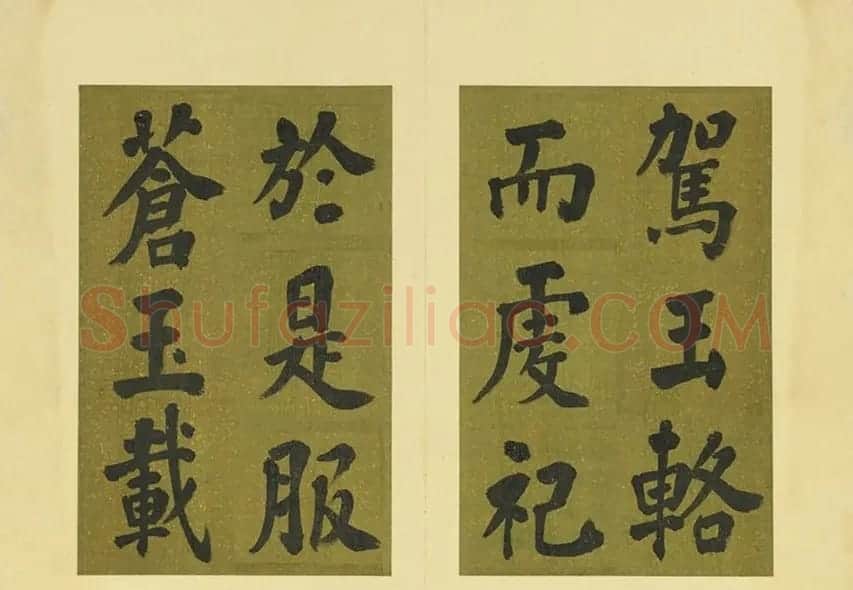 駕玉輅
而虔祀
於是服
蒼玉載
Shufaziliao.COM